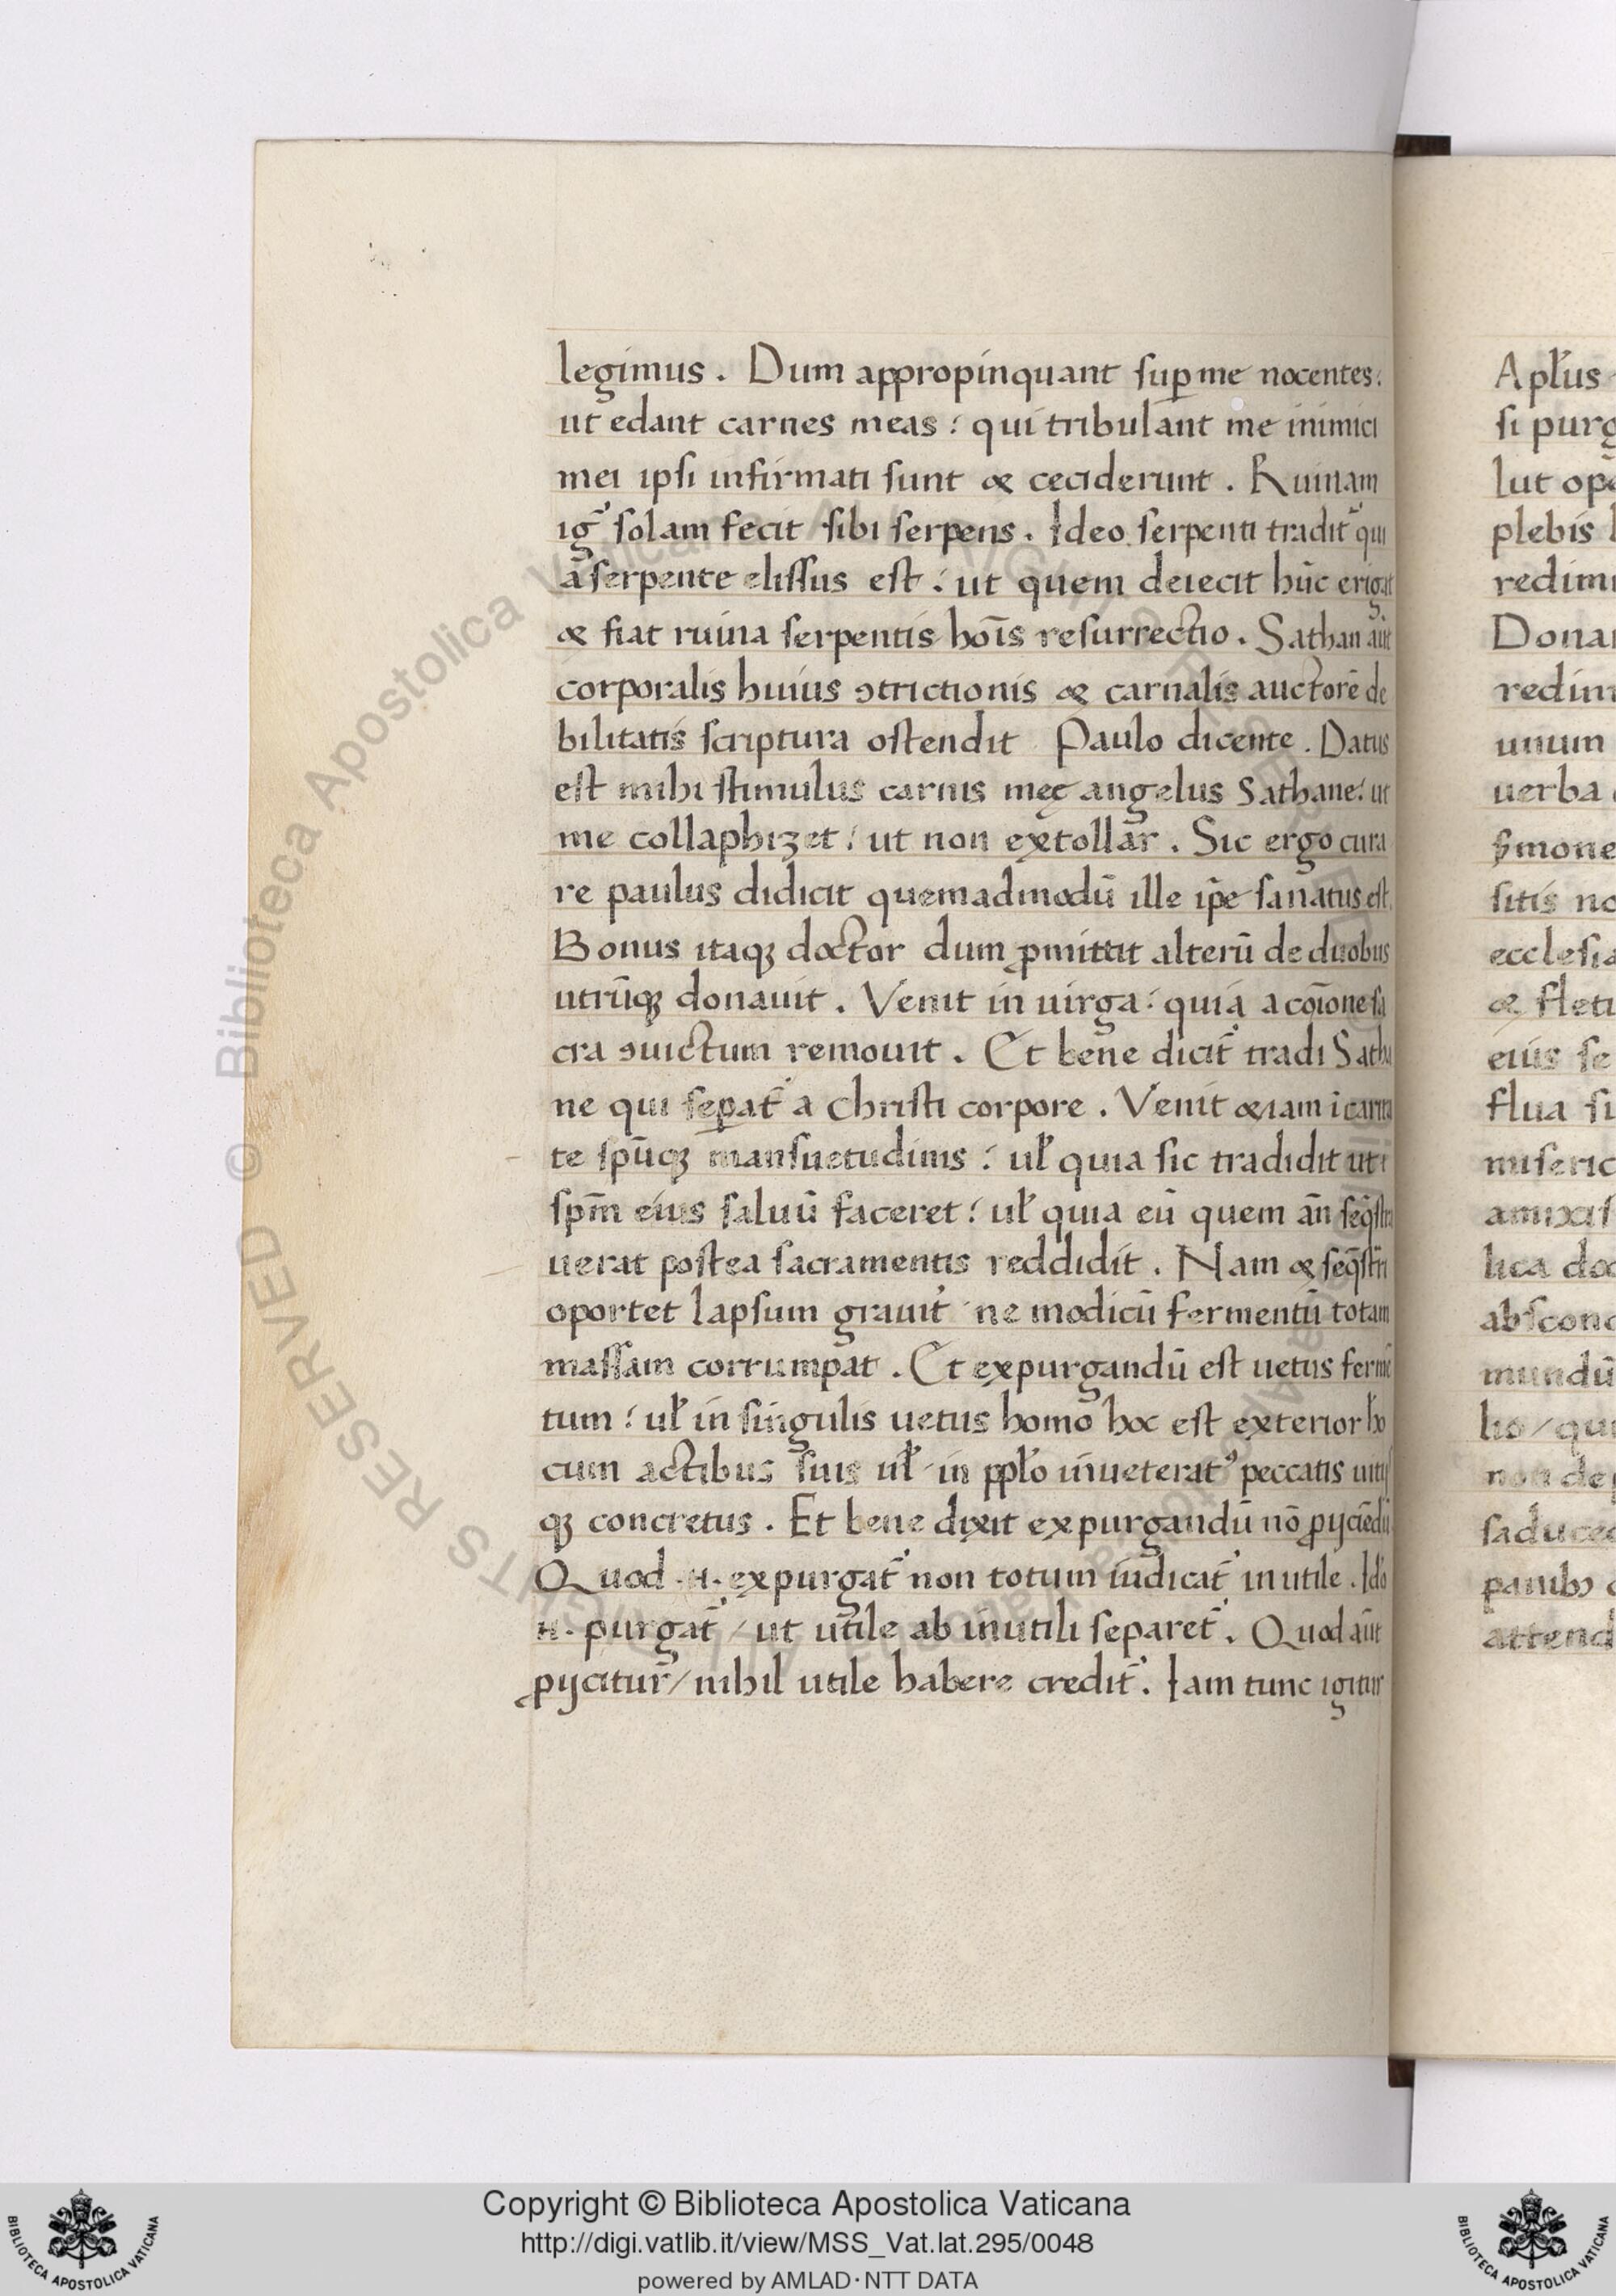 legimus. Dum appropinquant sup̱ me nocentes:
ut edant carnes meas: qui tribulant me inimici
mei ipsi infirmati sunt & ceciderunt. Ruinam
ig̃ solam fecit sibi serpens. Ideo serpenti tradit̃ qui
a serpente elissus est: ut quem deiecit hũc erigat
& fiat ruina serpentis hoĩs resurrectio. Sathan aũt
corporalis huius ↄtrictionis & carnalis auctorẽ de
bilitatis scriptura ostendit Paulo dicente. Datus
est mihi stimulus carnis meę angelus Sathane: ut
me collaphizet: ut non extollar. Sic ergo cura
re paulus didicit quemadmodũ ille ip̃e sanatus est.
Bonus itaqꝫ doctor dum ꝓmittit alterũ de duobus
utrũqꝫ donauit. Venit in uirga: quia a coĩone sa
cra ↄuictum remouit. Et bene dicit̃ tradi Satha
ne qui seꝑat̃ a Christi corpore. Venit &iam i carita
te spũqꝫ mansuetudinis: uł quia sic tradidit ut
sp̃m eius saluũ faceret: uł quia eũ quem añ seq̃stra
uerat postea sacramentis reddidit. Nam & seq̃stri
oportet lapsum grauit̃ ne modicũ fermentũ totam
massam corrumpat. Et expurgandũ est uetus fermẽ
tum: uł in singulis uetus homo hoc est exterior ho
cum actibus suis uł in ppło inueteratꝰ peccatis uitijs
qꝫ concretus. Et bene dixit expurgandũ nõ ꝓijciẽdũ
Quod .H. expurgat̃ non totum iudicat̃ inutile. Ido
.H. purgat̃ / ut utile ab inutili separet̃. Quod aũt
ꝓijcitur / nihil utile habere credit̃. Iam tunc igitur
Apłus
si purg
lut ope
plebis
redimi
Donar
redim
unum
uerba
smone
sitis no
ecclesia
& fleti
eius se
flua su
miseric
amixtis
lica doc
abscond
mundũ
lio / qui
non dep
saducec
panibꝰ
attend
© Biblioteca Apostolica Vaticana ALL RIGHTS RESERVED
Copyright © Biblioteca Apostolica Vaticana
http://digi.vatlib.it/view/MSS_Vat.lat.295/0048
powered by AMLAD·NTT DATA
BIBLIOTECA APOSTOLICA VATICANA
BIBLIOTECA APOSTOLICA VATICANA